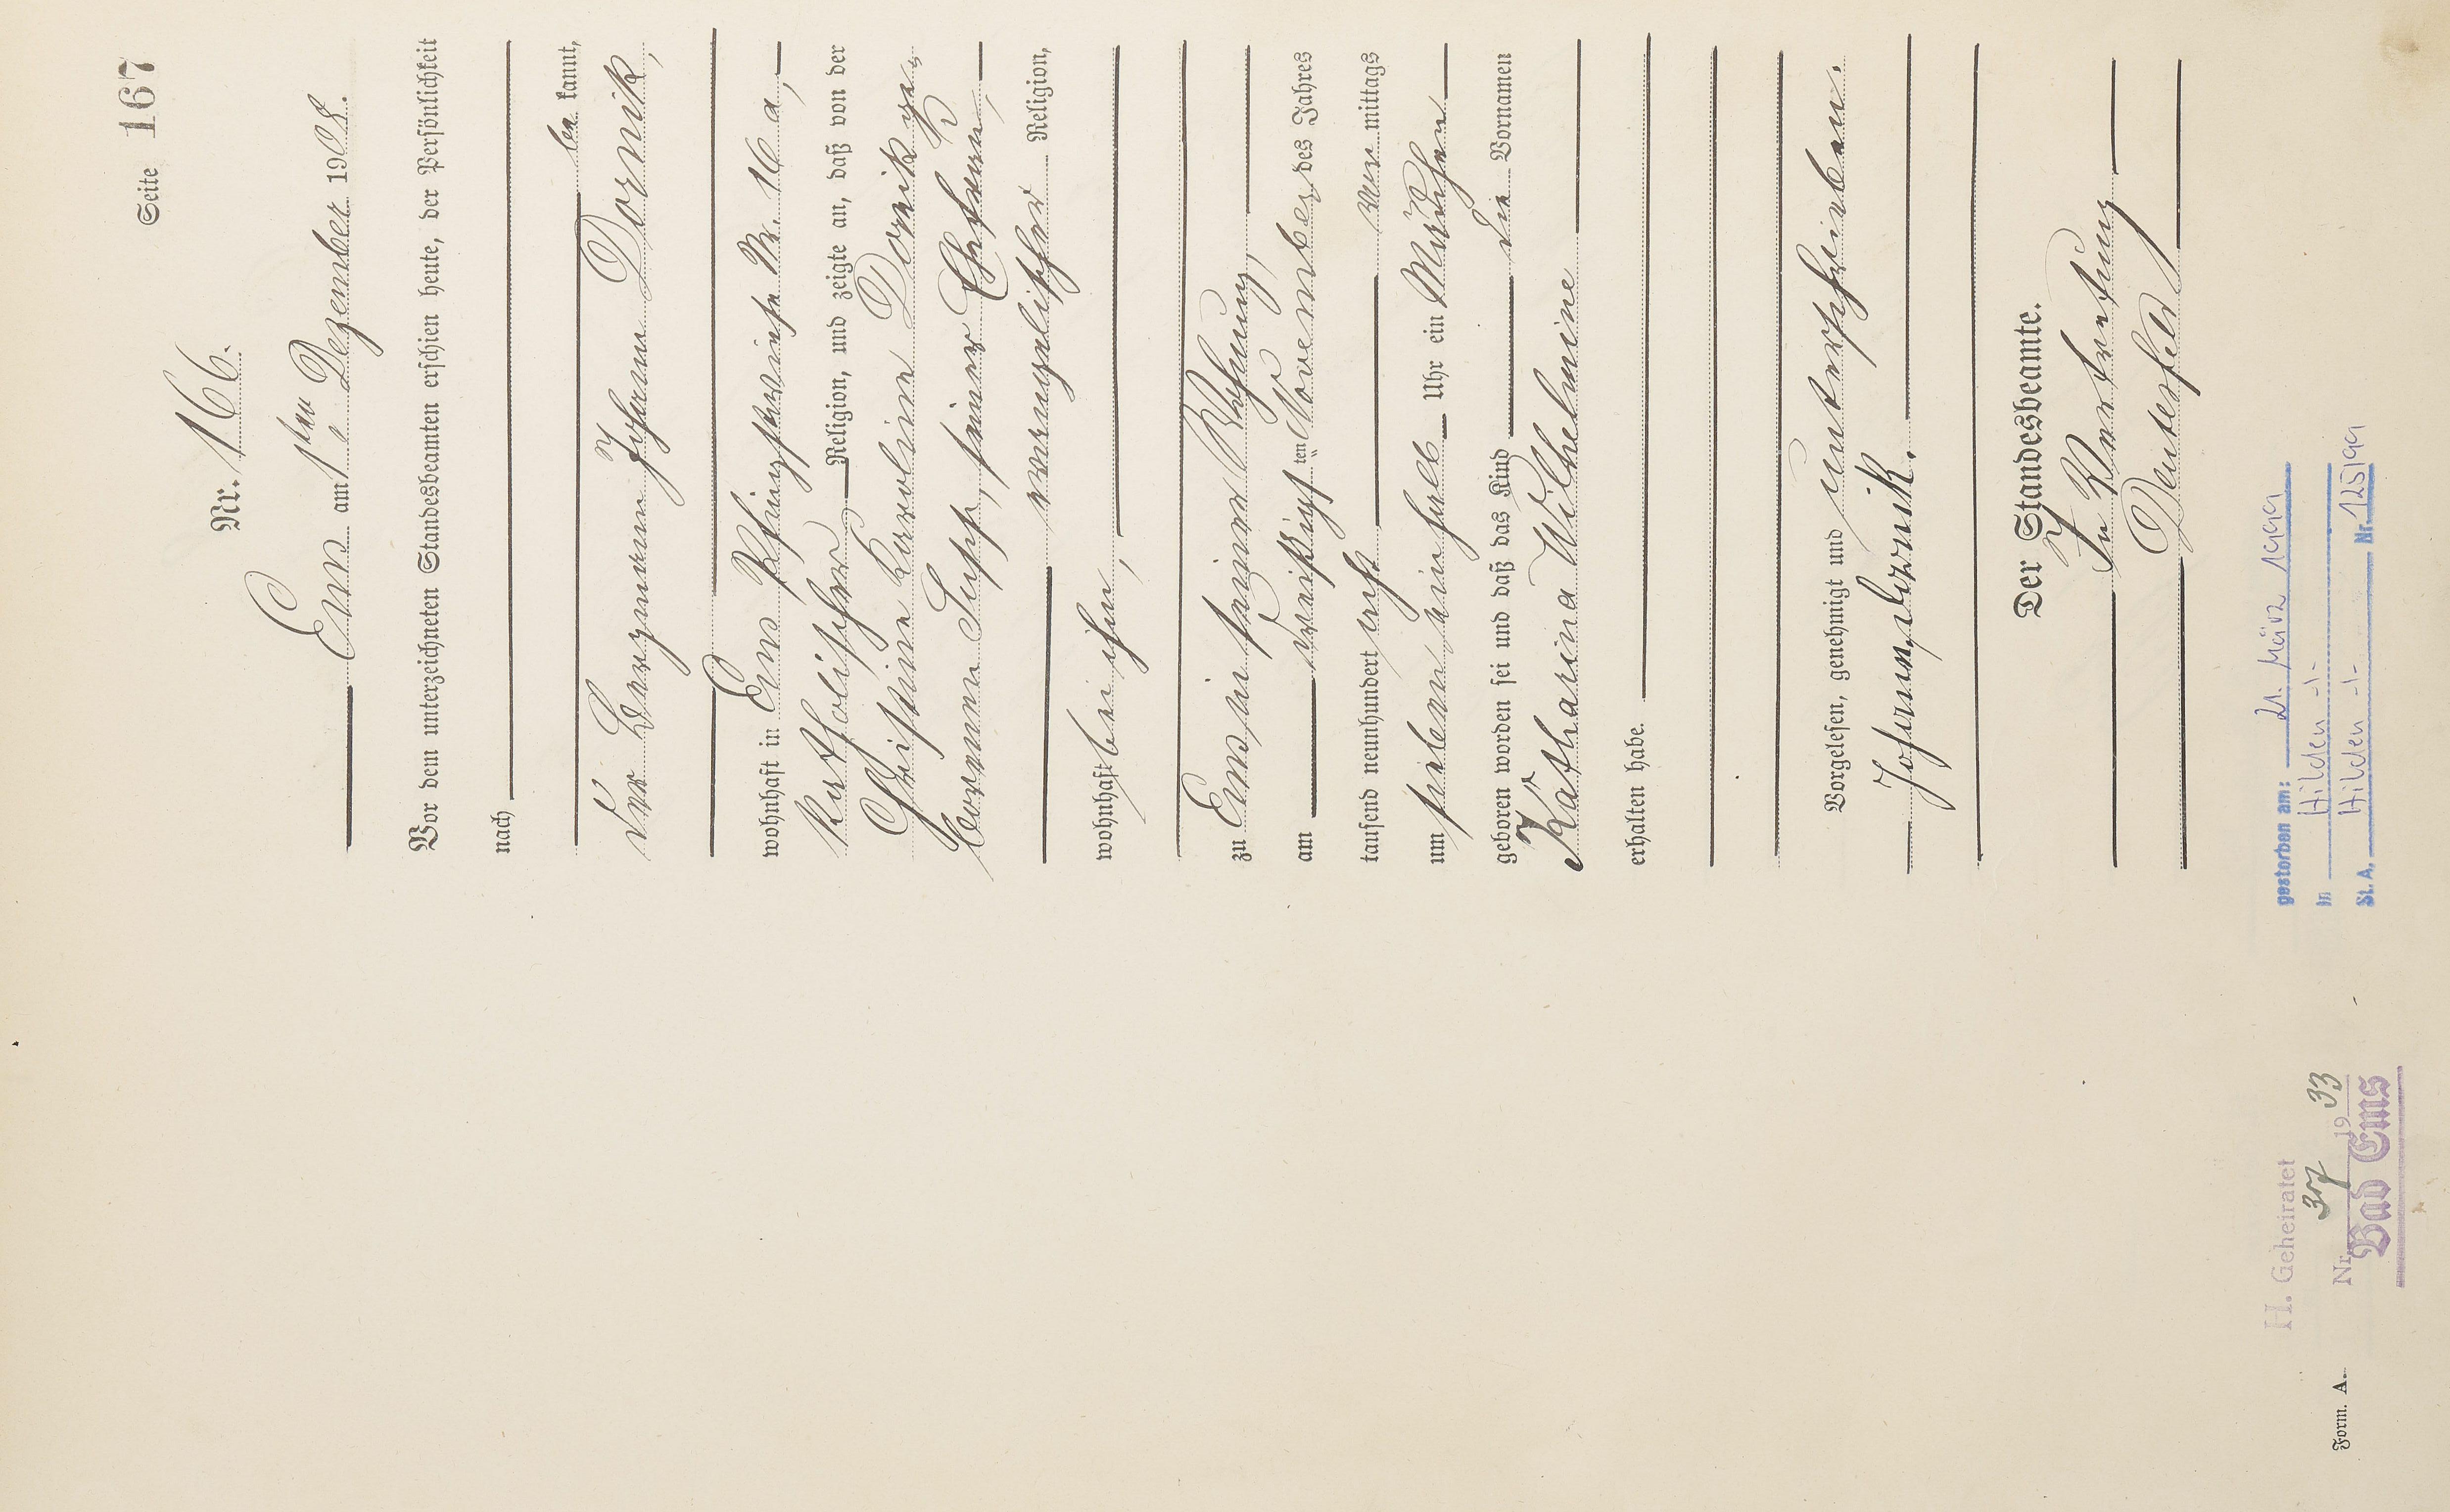 Seite 167
Nr. 166.
Ems am 1ten Dezember 1908.
Vor dem unterzeichneten Standesbeamten erschien heute, der Persönlichkeit
nach
be kannt,
der Bergmann Johann Dornik,
wohnhaft in Ems, Nr. 16 a,
katholischer Religion, und zeigte an, daß von der
Christine Karoline Dornik ge-
borenen Supp, seiner Ehefrau,
evangelischer Religion,
wohnhaft bei ihm,
zu Ems in seiner Wohnung,
am dreißigsten November des Jahres
tausend neunhundert acht Vor mittags
um sieben ein halb Uhr ein Mädchen
geboren worden sei und daß das Kind die Vornamen
Katharina Wilhelmine
erhalten habe.
Vorgelesen, genehmigt und unterschrieben.
Johann Dornik.
Der Standesbeamte.
In Vertretung
gestorben am: 21. März 1999
in Hilden -/-
St. A. Hilden -/- Nr. 125/99
H. Geheiratet
Nr. 37 1933
Bad Ems
Form. A.